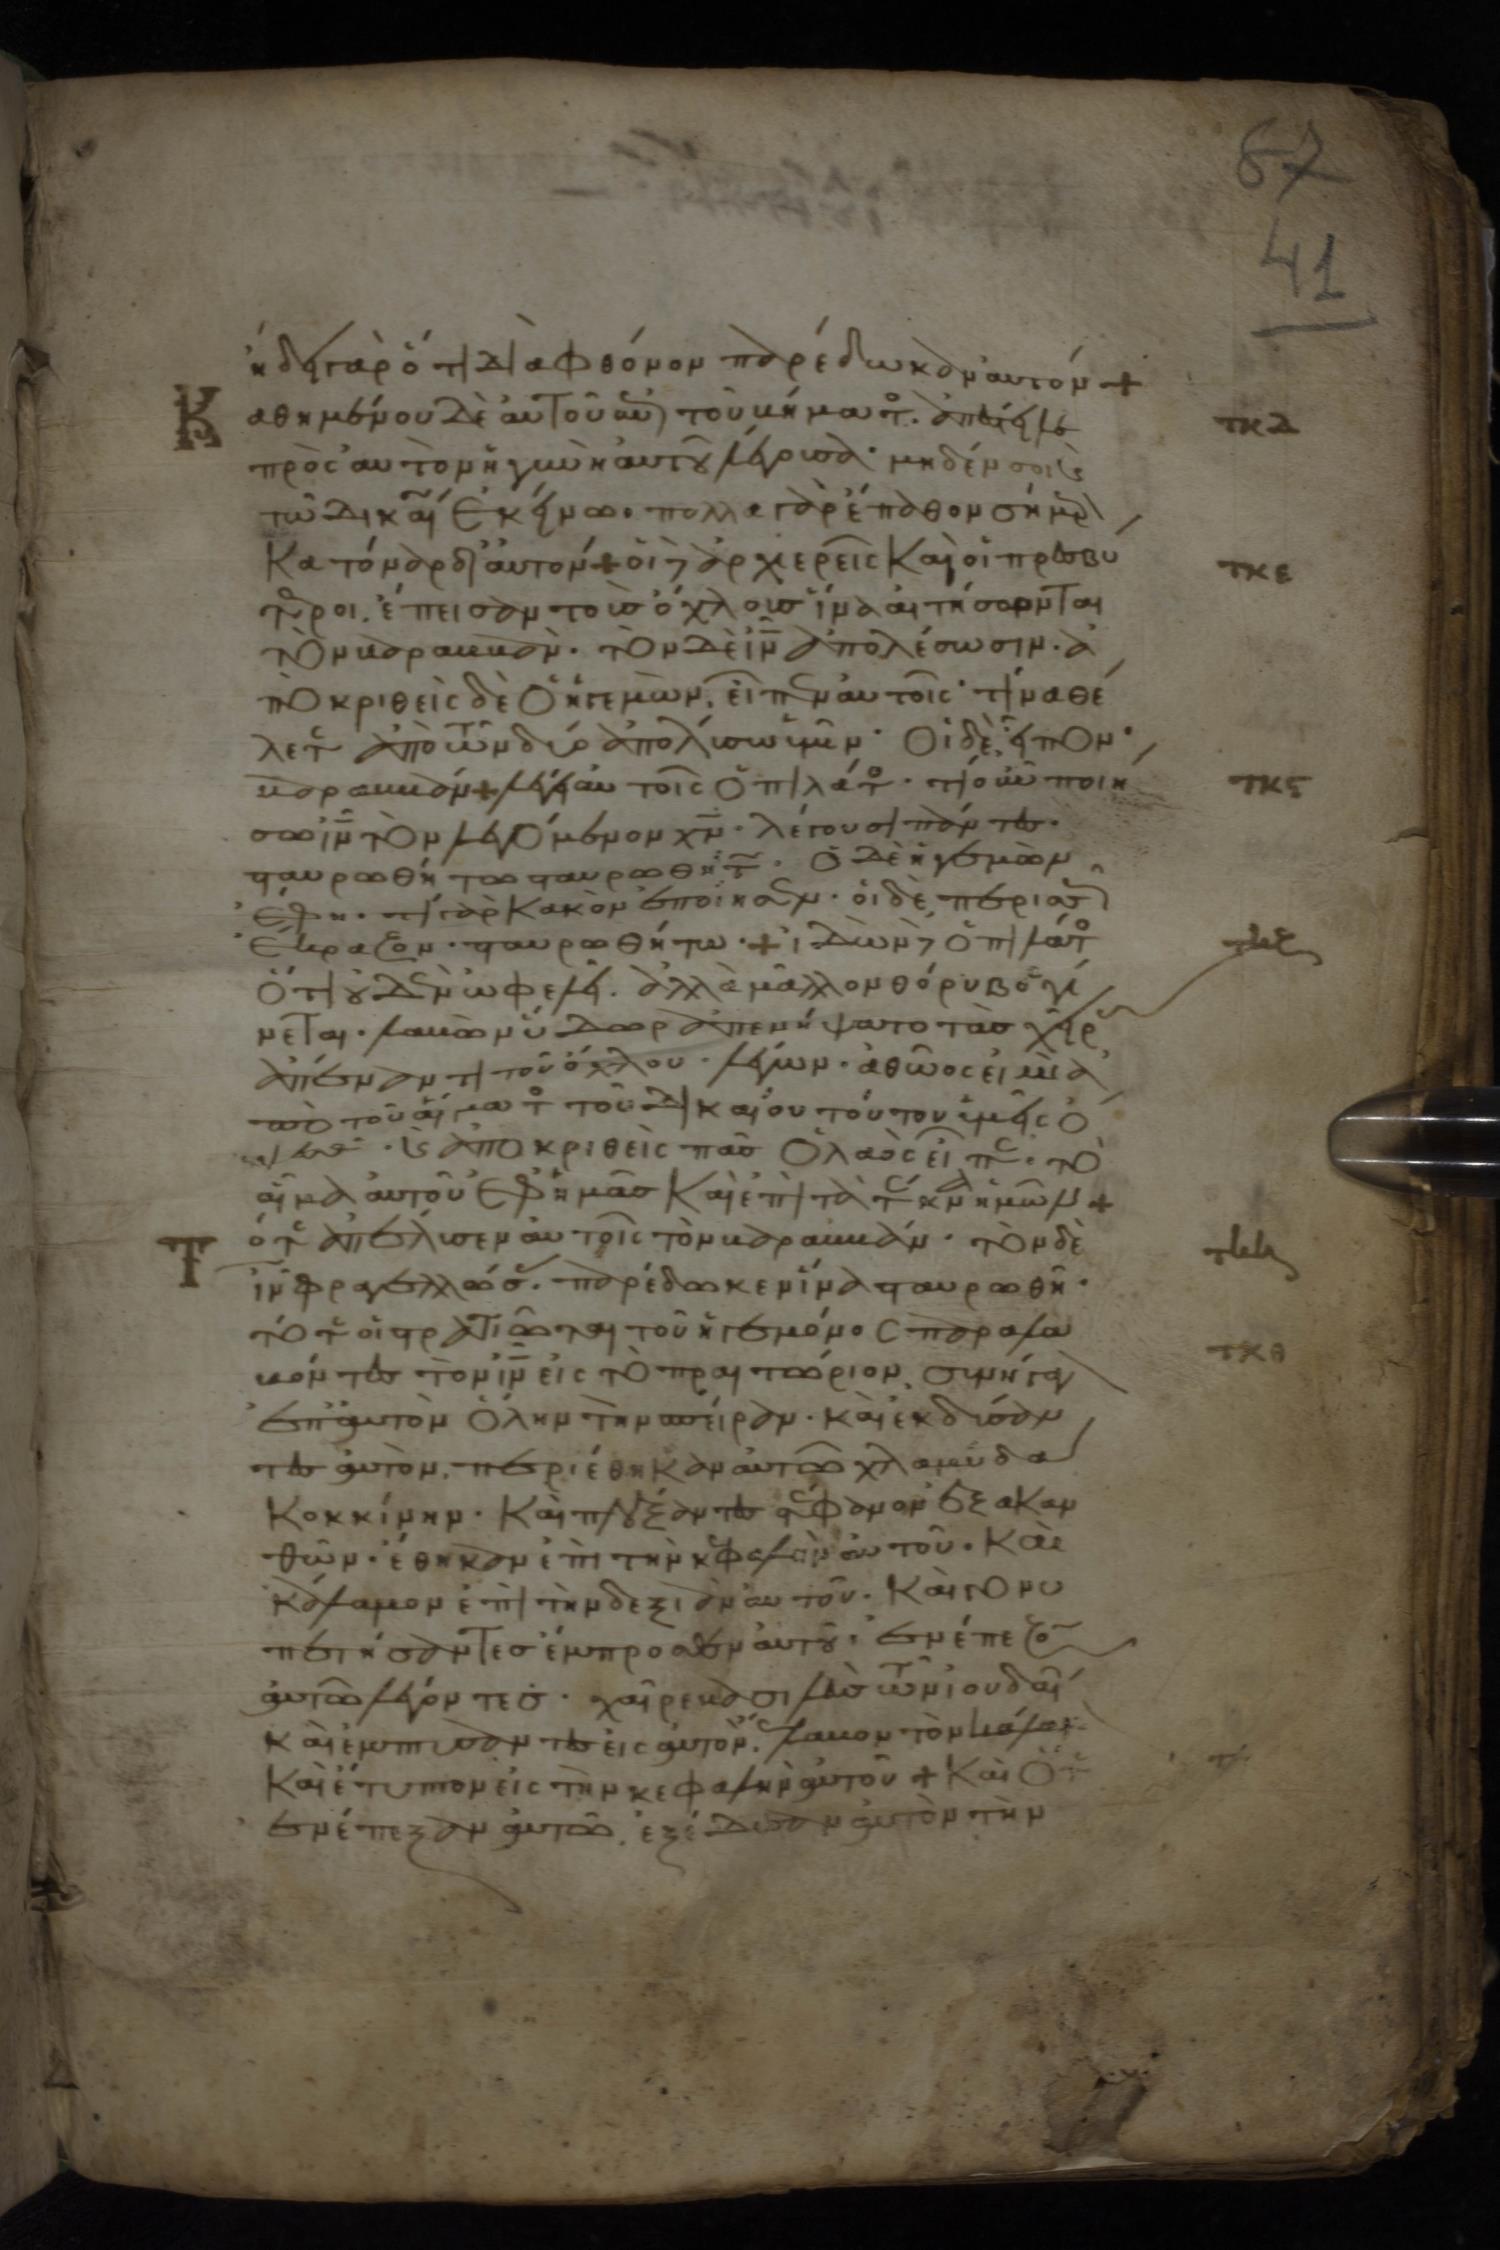 67
41
ἤδει γὰρ ὅτι διὰ φθόνον παρέδωκαν αὐτόν +
Καθημένου δὲ αὐτοῦ ἐπὶ τοῦ βήματος. ἀπέστειλε
πρὸς αὐτὸν ἡ γυνὴ αὐτοῦ λέγουσα· μηδέν σοι καὶ
τῷ δικαίῳ ἐκείνω· πολλα γὰρ ἔπαθον σήμερ
Κατ όναρ δι αὐτόν + οἱ δὲ ἀρχιερεῖς Καὶ οἱ πρεσβύ
τεροι. ἔπεισαν τοὺς ὄχλους ἵνα αἰτήσονται
τὸν βαραββὰν. τὸν δὲ ἰν ἀπολέσωσιν. ἀ
ποκριθεὶς δὲ ὁ ἡγεμὼν, εἶπεν αὐτοῖς· τίνα θέ
λετε ἀπὸ τῶν δύο ἀπολύσω ὑμῖν· Οἱ δὲ εἶπον·
βαραββάν + λέγει αὐτοῖς ὁ πιλάτος· τί οὖν ποιή
σω ἰν τὸν λεγόμενον χν· λέγουσι πάντες·
σταυρωθήτω σταυρωθήτω. ὁ δὲ ἡγεμὼν
ἔφη· τί γὰρ Κακὸν ἐποίησεν. οἱ δὲ περισσῶς
ἔκραζον· σταυρωθήτω· + ἰδὼν δὲ ὁ πιλάτος
ὅτι οὐδὲν ὠφελεῖ. ἀλλὰ μᾶλλον θόρυβος γί
νεται. λαβὼν ὕδωρ ἀπενήψατο τὰς χεῖρ
ἀπέναντι τοῦ ὄχλου. λέγων. ἀθῶος εἰμὶ ἀ
πὸ τοῦ αἵματος τοῦ δικαίου τούτου ὑμεῖς ὄ
ψεσθε. καὶ ἀποκριθεὶς πᾶς ὁ λαὸς εἶπε. τὸ
αἷμα αὐτοῦ ἐφ ἡμᾶς Καὶ ἐπὶ τὰ τέκνα ἡμῶν +
Τότε ἀπέλυσεν αὐτοῖς τὸν βαραββάν. τὸν δὲ
ἰν φραγελλώσας. παρέδωκεν ἵνα σταυρωθῆ.
τότε οἱ στρατιῶται τοῦ ἡγεμόνος παραλα
βόντες τὸν ἰν εἰς τὸ πραιτώριον, συνήγαγ
ἐπ αὐτὸν ὅλην τὴν σπείραν. καὶ ἐκδύσαν
τες αὐτὸν. περιέθηκαν αὐτῶ χλαμύδα
Κοκκίνην. Καὶ πλέξαντες στέφανον ἐξ ακαν
θῶν. ἔθηκαν ἐπὶ τὴν κεφαλὴν αὐτοῦ. Καὶ
κάλαμον ἐπὶ τὴν δεξιὰν αὐτοῦ. Καὶ γονυ
πετήσαντες ἔμπροσθεν αὐτοῦ. ἐνέπεζον
αὐτῶ λέγοντες. χαῖρε βασιλεὺς τῶν ἰουδαί
καὶ ἐμπτύσαντες εἰς αὐτὸν. ἔλαβον τὸν κάλαμ
Καὶ ἔτυπτον εἰς τὴν κεφαλὴν αὐτοῦ + Καὶ ὅτε
ἐνέπεξαν αὐτῶ, ἐξέδυσαν αὐτὸν τὴν
τκδ
τκε
τκς
τκζ
τκη
τκθ